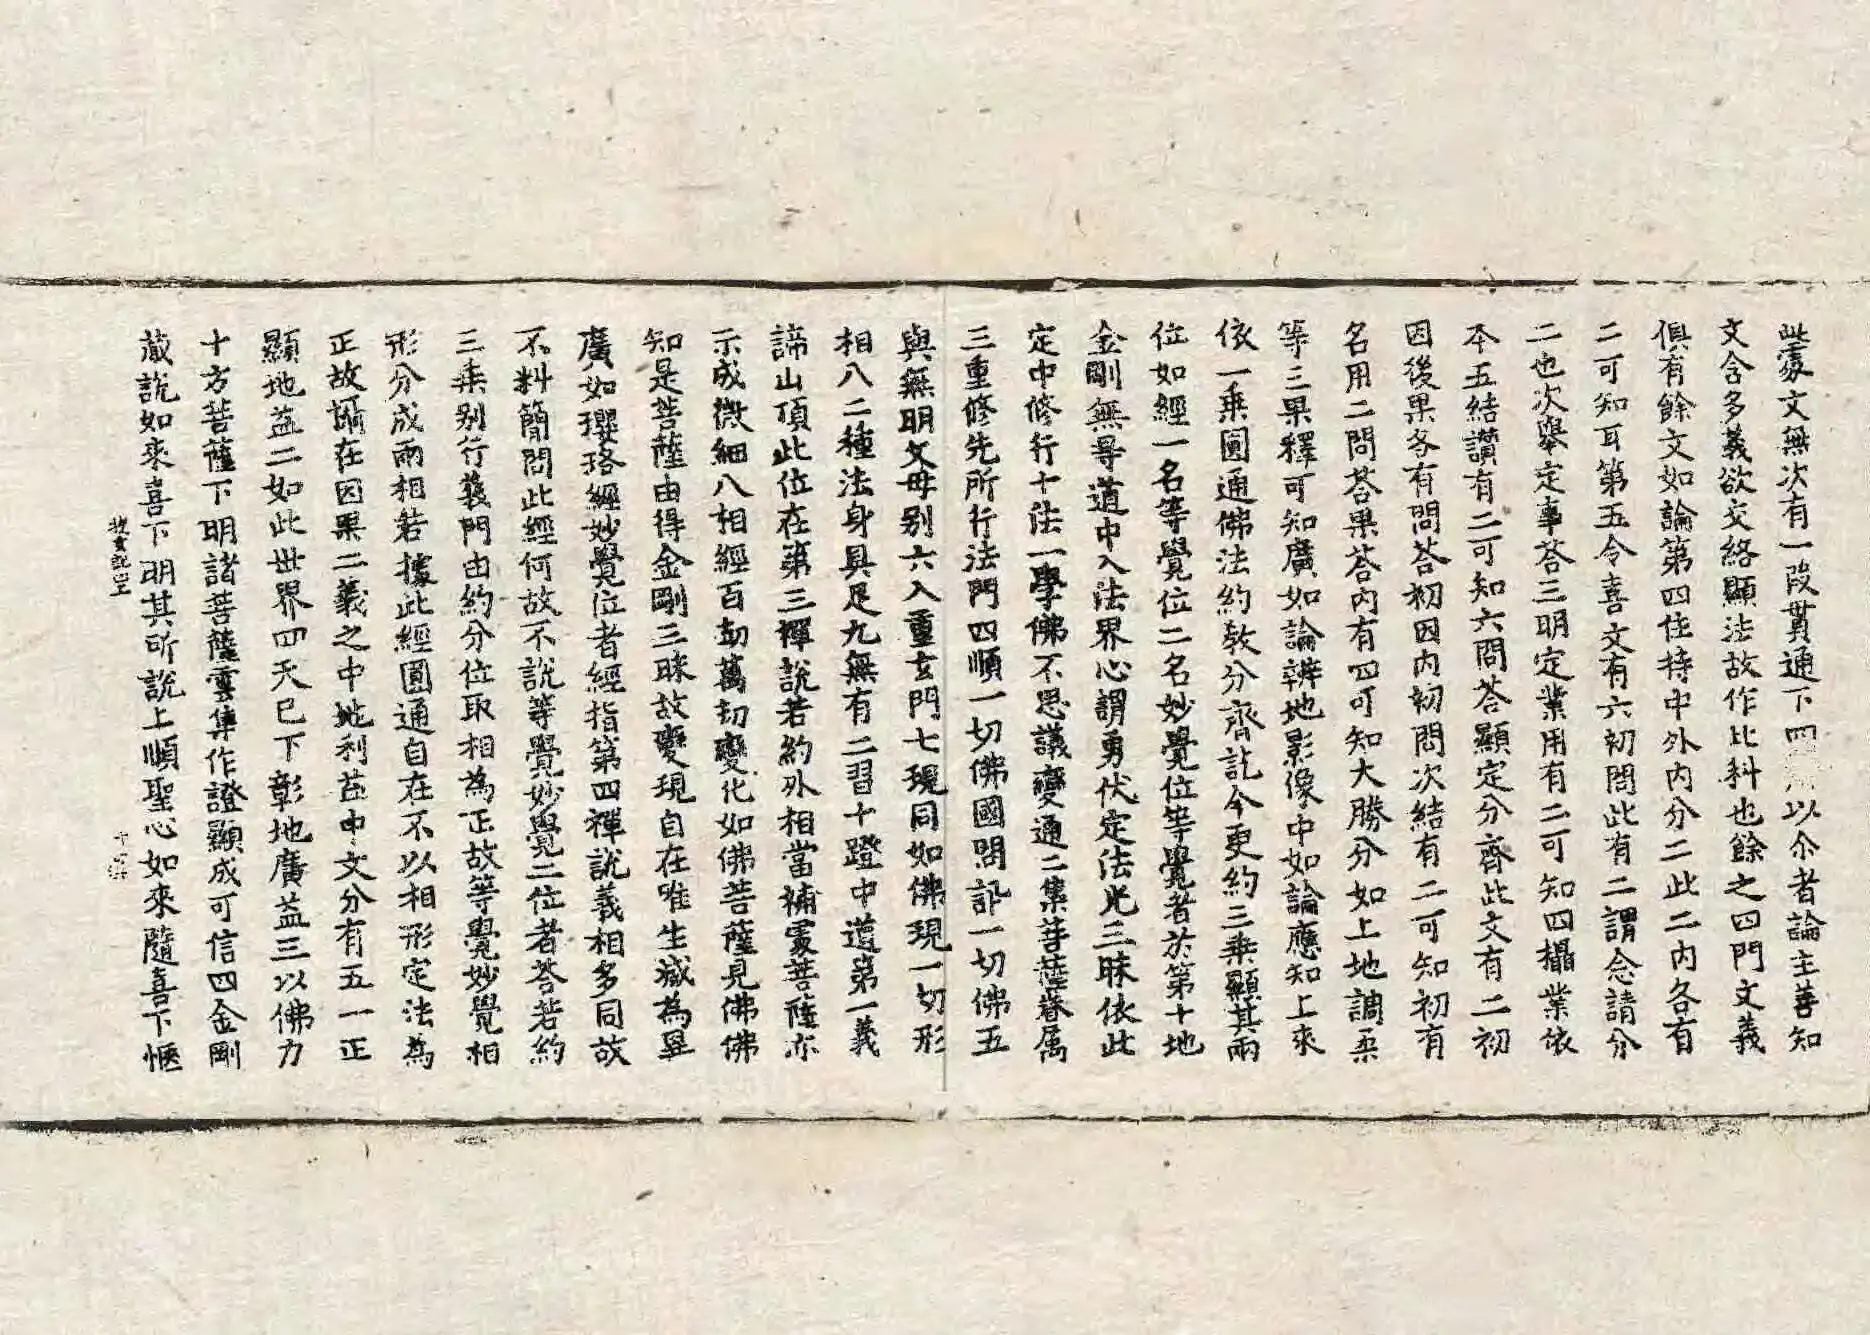 此處文無次有一段貫通下四以尒者論主善知
文含多義欲交絡顯法故作比科也餘之四門文義
俱有餘文如論第四住持中外內分二此二內各有
二可知耳第五令喜文有六初問此有二謂念請分
二也次舉定事荅三明定業用有二可知四攝業依
本五結讚有二可知六問荅顯定分齊此文有二初
因後果各有問荅初因內初問次結有二可知初有
名用二問荅果荅內有四可知大勝分如上地調柔
等三果釋可知廣如論辨地影像中如論應知上來
依一乘圓通佛法約教分齊訖今更約三乘顯其兩
位如經一名等覺位二名妙覺位等覺者於第十地
金剛無㝵道中入法界心謂勇伏定法光三昧依此
定中修行十法一學佛不思議變通二集菩薩眷属
三重修先所行法門四順一切佛國問訊一切佛五
與無明父母別六入重玄門七現同如佛現一切形
相八二種法身具足九無有二習十蹬中道第一義
諦山頂此位在第三禪說若約外相當補處菩薩亦
示成微細八相經百劫萬劫變化如佛菩薩見佛佛
知是菩薩由得金剛三昧故變現自在唯生滅為異
廣如瓔珞經妙覺位者經指第四禪說義相多同故
不料簡問此經何故不說等覺妙覺二位者荅若約
三乘别行義門由約分位取相為正故等覺妙覺相
形分成兩相若據此經圓通自在不以相形定法為
正故攝在因果二義之中地利益中文分有五一正
顯地益二如此世界四天已下彰地廣益三以佛力
十方菩薩下明諸菩薩雲集作證顯成可信四金剛
藏說如來喜下明其所說上順聖心如來隨喜下愜